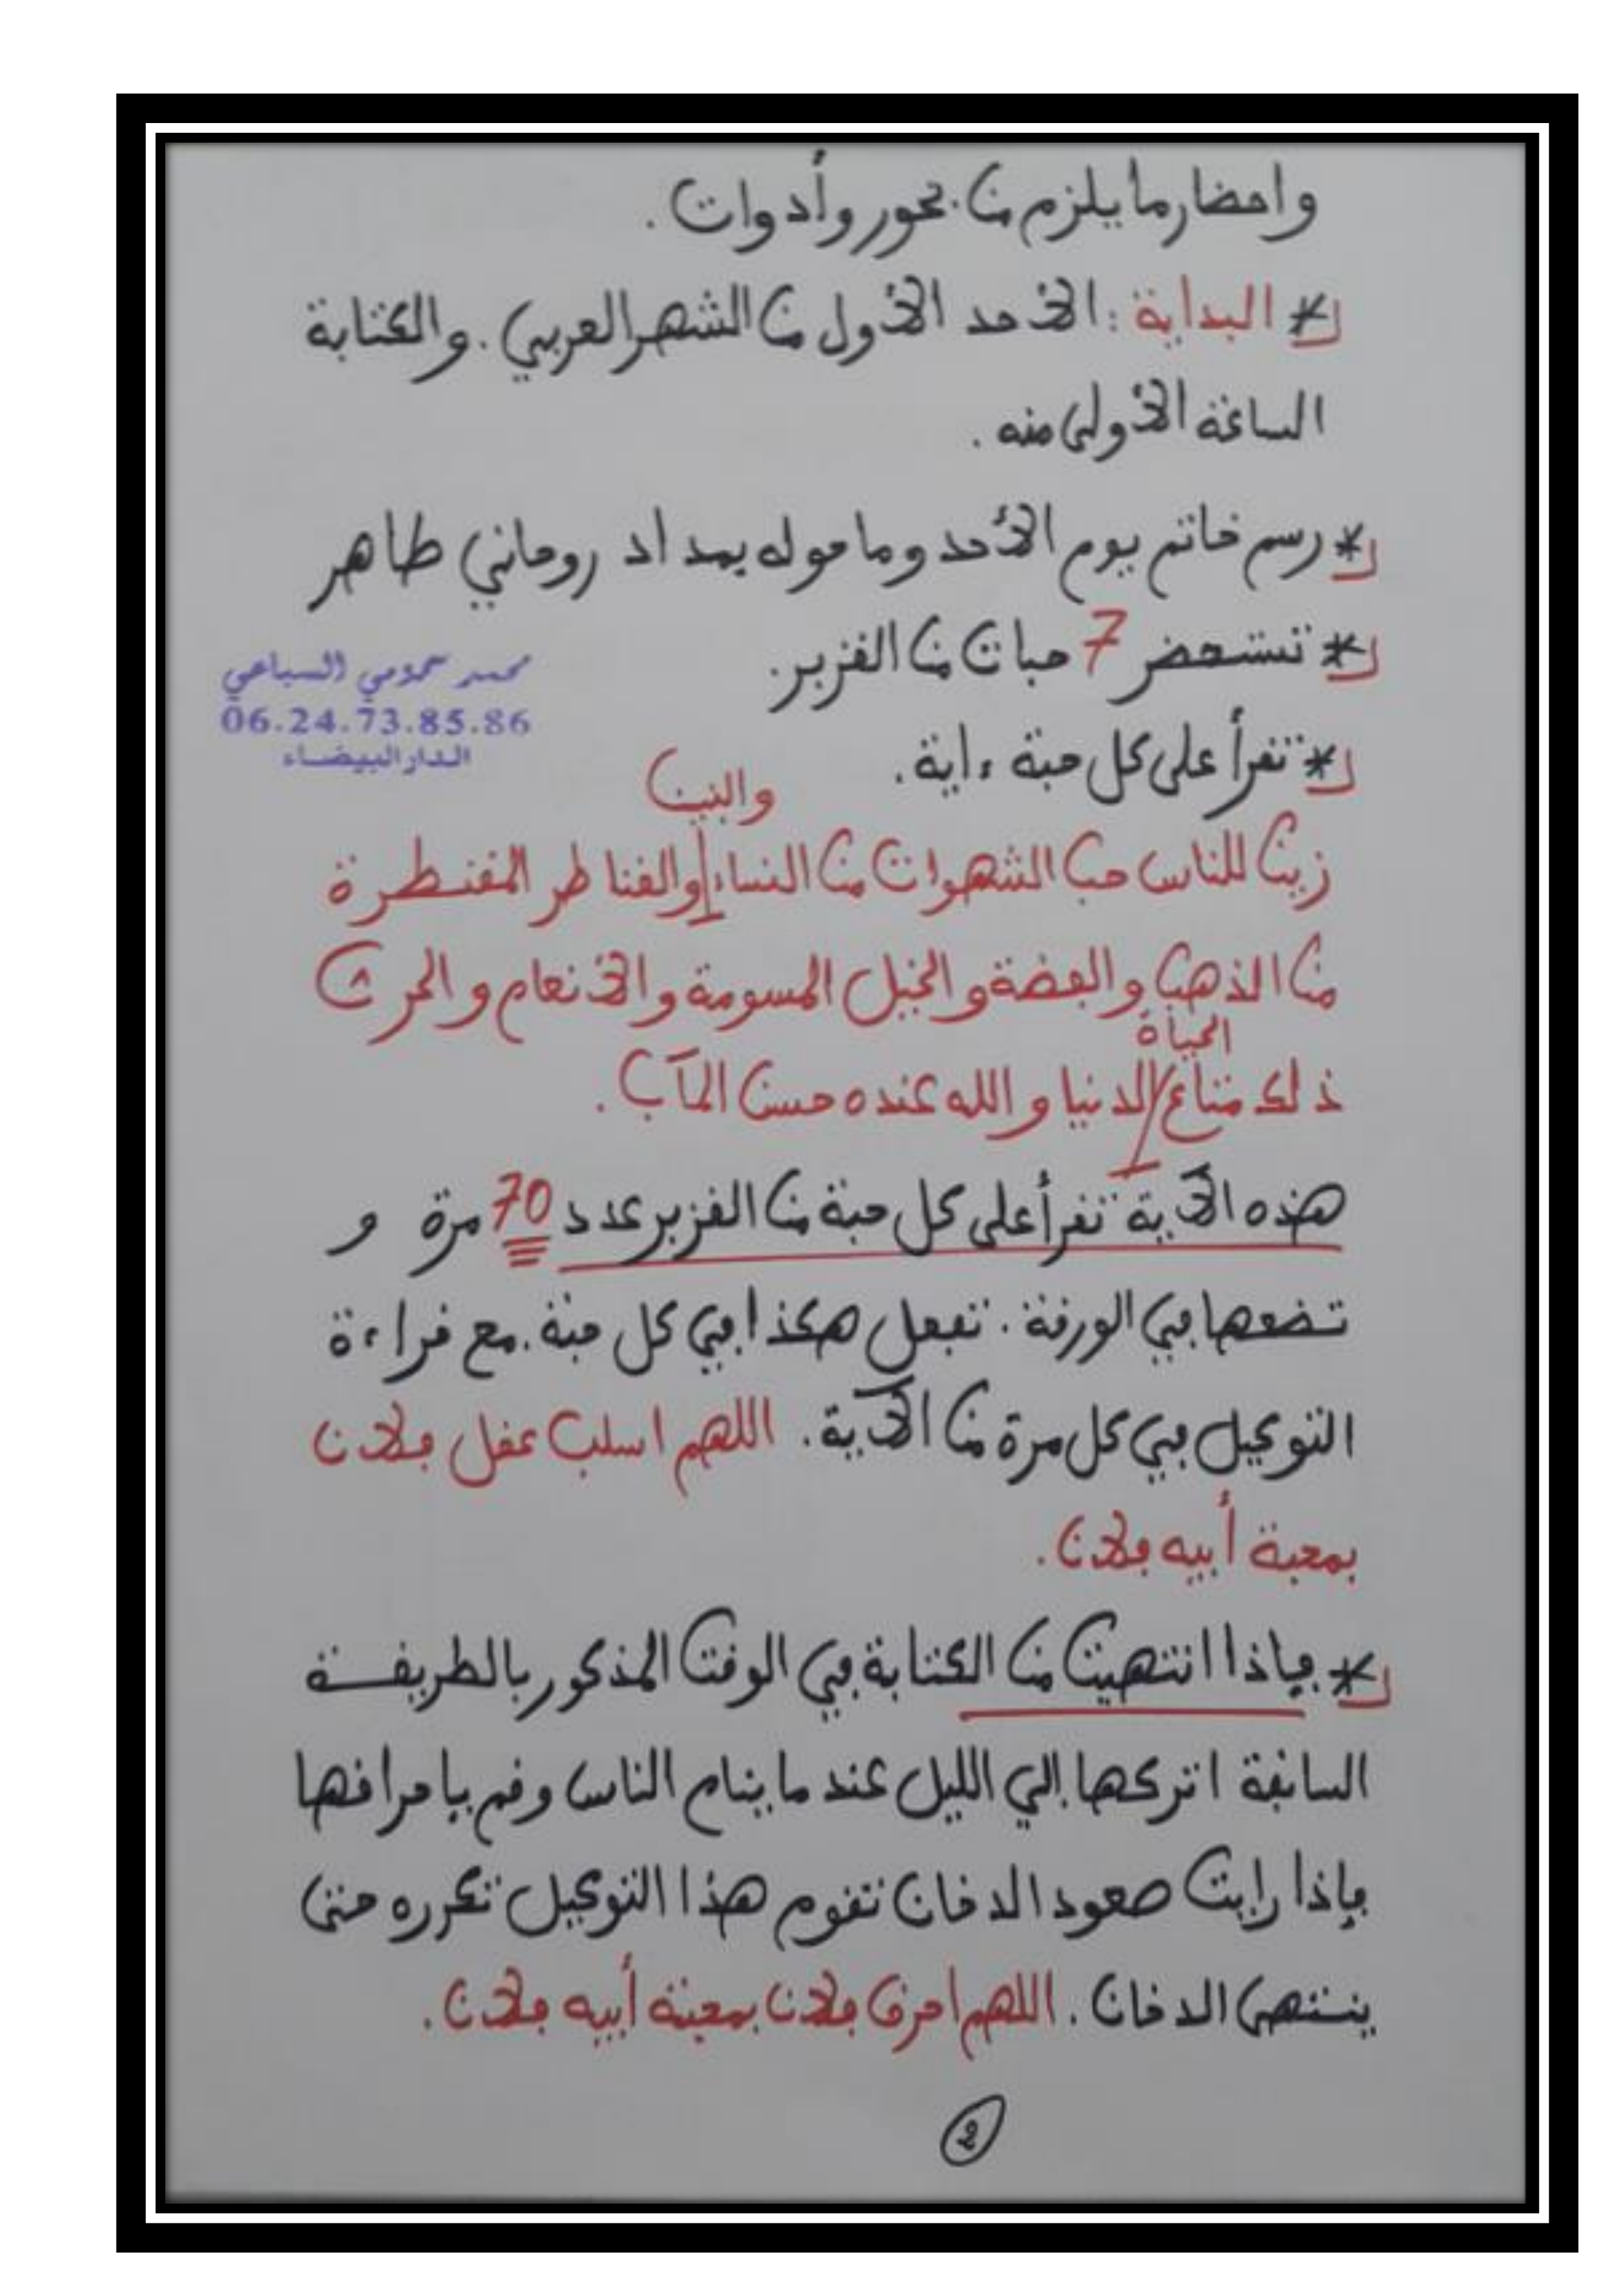 واحضار ما يلزم من بخور وأدوات.
* البداية: الأحد الأول من الشهر العربي. والكتابة
الساعة الأولى منه.
* رسم خاتم يوم الأحد وما حوله بمداد روحاني طاهر
* تستحضر 7 حبات من القزبر.
محمد حمومي السباعي
06.24.73.85.86
الدار البيضاء
* تقرأ على كل حبة ءاية.
والبنين
زين للناس حب الشهوات من النساء والقناطر المقنطرة
من الذهب والفضة والخيل المسومة والأنعام والحرث
الحياة
ذلك متاع الدنيا والله عنده حسن المآب.
هذه الآية تقرأ على كل حبة من القزبر عدد 70 مرة و
تضعها في الورقة. تفعل هكذا في كل حبة. مع قراءة
التوكيل في كل مرة من الآية. اللهم اسلب عقل فلان
بمحبة أبيه فلان.
* فإذا انتهيت من الكتابة في الوقت المذكور بالطريقة
السابقة اتركها إلي الليل عند ما ينام الناس وقم بإحراقها
فإذا رايت صعود الدخان تقوم هذا التوكيل تكرره حتى
ينتهي الدخان. اللهم احرق فلان بمحبة أبيه فلان.
2